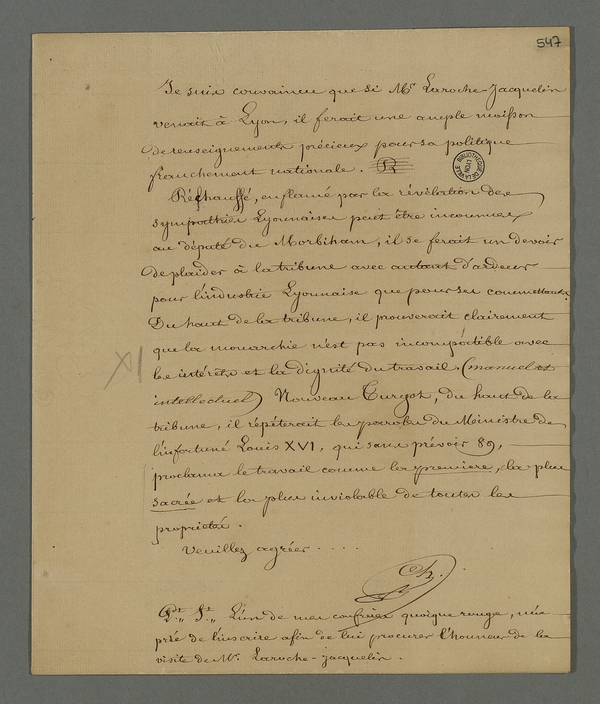 547
Je suis convaincu que si Mr. Laroche-Jacquelin
venait à Lyon, il ferait une ample moisson
de renseignements précieux pour sa politique
franchement nationale.
BIBLIOTHÈQUE DE LA VILLE LYON
Réchauffé, enflamé par la révélation des
sympathies Lyonnaises peut être inconnues
au député du Morbihan, il se ferait un devoir
de plaider à la tribune avec autant d'ardeur
pour l'industrie Lyonnaise que pour ses commettants.
Du haut de la tribune, il prouverait clairement
que la monarchie n'est pas incompatible avec
les intérêts et la dignité du travail. (manuel et
intellectuel) Nouveau Turgot, du haut de la
tribune, il répéterait les paroles du Ministre de
l'infortuné Louis XVI, qui sans prévoir 89,
proclama le travail comme la première, la plus
sacrée et la plus inviolable de toutes les
propriétés.
Veuillez agréer . . . .
Ch.
Pt. St. L'un de mes confrères quoique rouge, m'a
prié de l'inscrire afin de lui procurer l'honneur de la
visite de Mr. Laroche-jacquelin.